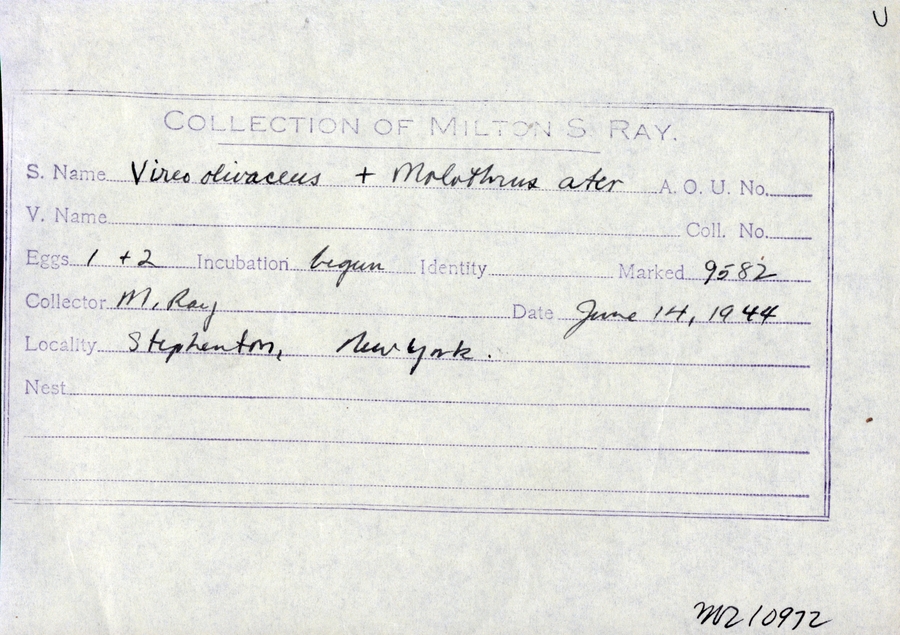 U
COLLECTION OF MILTON S. RAY.
S. Name Vireo olivaceus + Molothrus ater A. O. U. No.
V. Name Coll. No.
Eggs 1 + 2 Incubation begun Identity Marked 9582
Collector M. Ray Date June 14, 1944
Locality Stephenton, New York.
Nest
10972